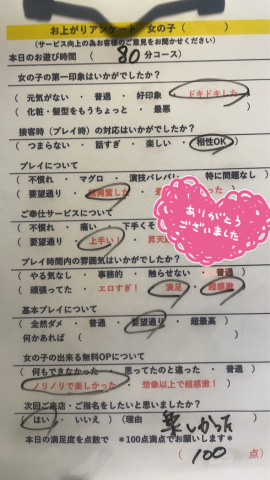 お上がりアンケート 女の子(　　　)
(サービス向上の為お客様のご意見をお聞かせください)
本日のお遊び時間 ( 80 分コース)
女の子の第一印象はいかがでしたか?
( 元気がない ・ 普通 ・ 好印象 ・ ドキドキした )
( 化粧・髪型をもうちょっと ・ 最悪 )
接客時(プレイ時)の対応はいかがでしたか?
( つまらない ・ 話すぎ ・ 楽しい ・ 相性OK )
プレイについて
( 不慣れ ・ マグロ ・ 演技バレバレ ・ 特に問題なし
( 要望通り ・ 興奮した ・ った )
ご奉仕サービスについて
( 不慣れ ・ 痛い ・ 下手くそ
( 要望通り ・ 上手い! ・ 昇天
ありがとう
ございました
プレイ時間内の雰囲気はいかがでしたか?
( やる気なし ・ 事務的 ・ 触らせない ・ 普通 )
( 頑張ってた ・ エロすぎ! ・ 満足 ・ 超感激 )
基本プレイについて
( 全然ダメ ・ 普通 ・ 要望通り ・ 超最高 )
何かあれば (　　　)
女の子の出来る無料OPについて
( 何もできなかった ・ 思ってたのと違った ・ 普通 )
( ノリノリで楽しかった ・ 想像以上で超感激! )
次回ご来店・ご指名をしたいと思いましたか?
( はい ・ いいえ ) (理由 楽しかった
本日の満足度を点数で *100点満点でお願いします*
( 100 点)